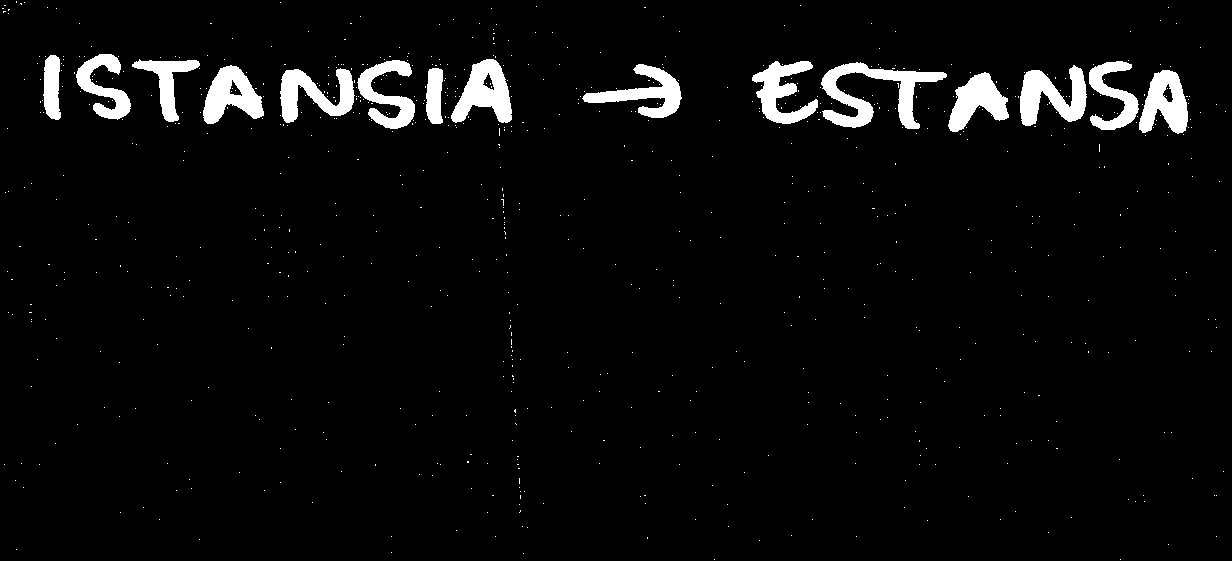 ISTANSIA → ESTANSA